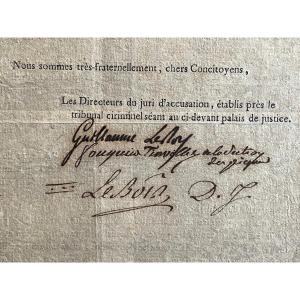 Nous sommes très-fraternellement, chers Concitoyens,
Les Directeurs du juri d'accusation, établis près le
tribunal ciriminel séant au ci-devant palais de justice.
Guillaume Leroy
fouquier Tinville de la section
LeBois D. J.